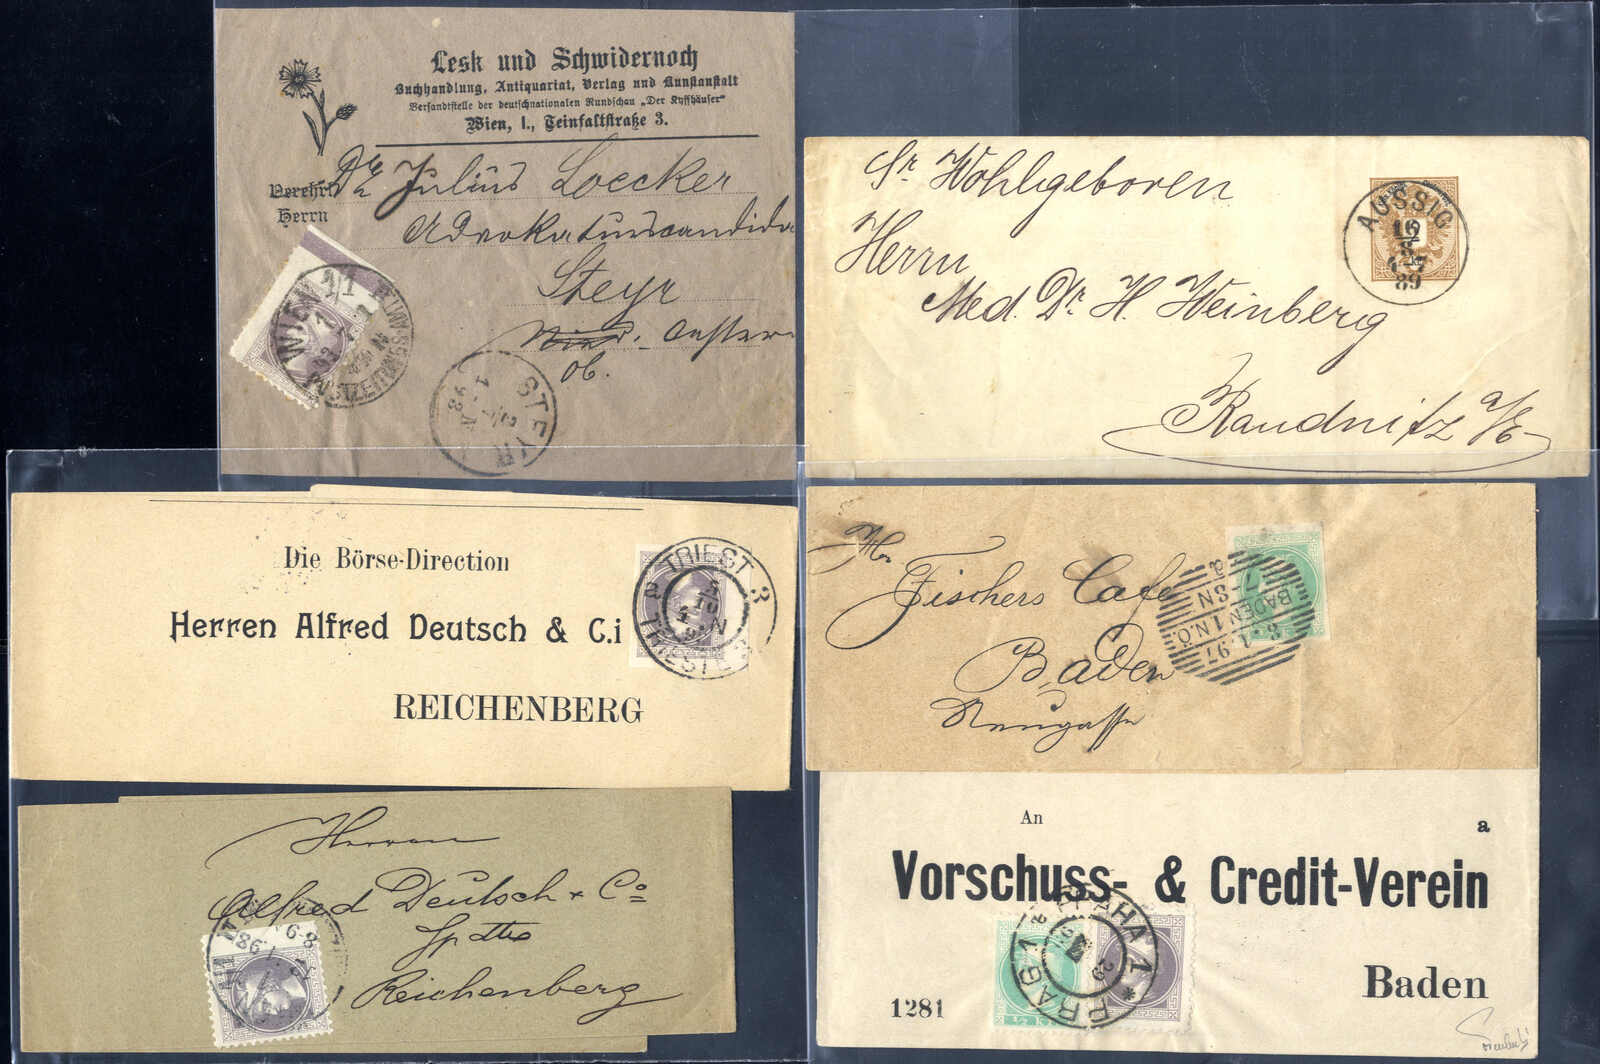 Lesk und Schwidernoch
Buchhandlung, Antiquariat, Verlag und Kunstanstalt
Versandtstelle der deutschnationalen Rundschau „Der Kyffhäuser“
Wien, I., Teinfaltstraße 3.
Dr Julius Loecker
Herrn
Advokaturscandida
Steyr
ob.
WIEN 1/1
STEYR
Sr. Wohlgeboren
Herrn
Med. Dr. H. Weinberg
Raudnitz a/E
AUSSIG
89
Die Börse-Direction
Herren Alfred Deutsch & C.i
REICHENBERG
TRIEST 3
TRIESTE 3
Fischers Café
Baden
Neugasse
BADEN 1 N.Ö.
3.1.97
Herren
Alfred Deutsch & Co
Reichenberg
An
a
Vorschuss- & Credit-Verein
Baden
1281
PRAHA 1
PRAG 1
½ Kr